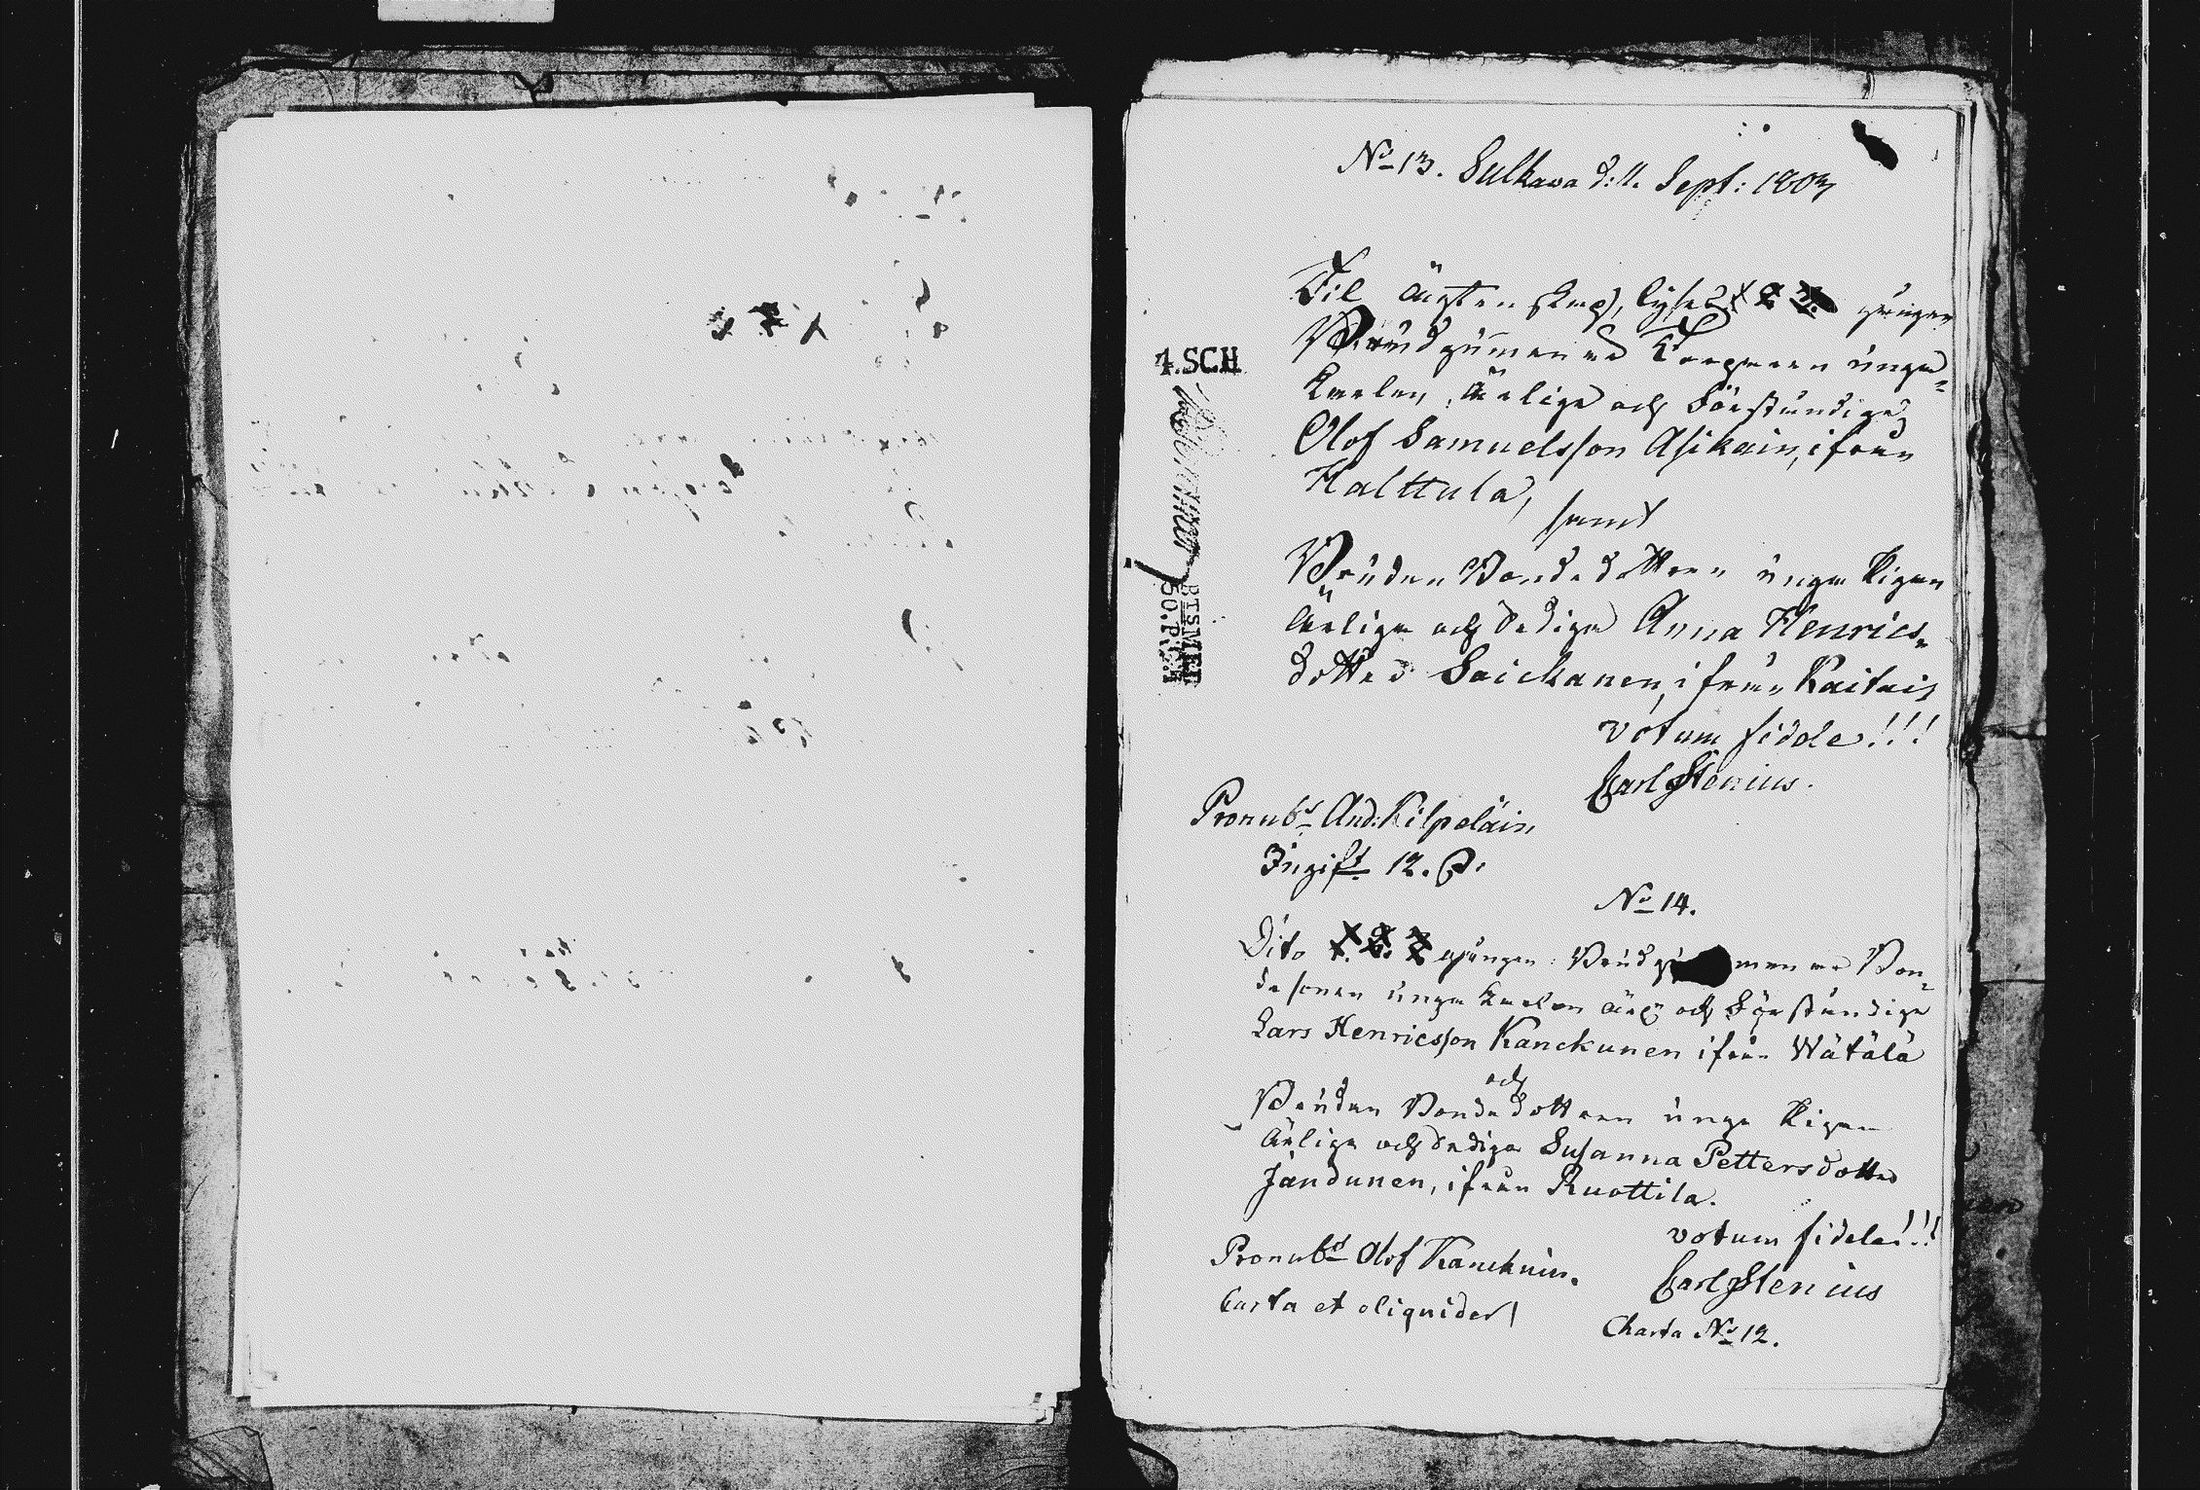 No 13. Sulkawa d: 11. Sept: 1803
Til ägtenskap, lyses 1 2 3 gången
Brudgummen Torparen unga
Karlen, Ärlige och Förståndige
Olof Samuelsson Asikain, ifrån
Halttula,
samt
Bruden Bondedottren unga Pigan
Ärliga och Sediga Anna Henrics
dotter Saickanen, ifrån Kaitais
votum fidele!!!
Carl Stenius.
4.SCH
BTSMELT
50.P.SCH
Pronubs And: Kilpeläin,
Ingift 12. P.
No 14.
Dito 1. 2. 3 gången Brudgummen Bon-
desonen unga Karlen Ärl: och Förståndige
Lars Henricsson Kanckunen ifrån Wätälä
och
Bruden Bondedottren unga Pigan
Ärliga och Sediga Susanna Pettersdotter
Jandunen, ifrån Ruottila.
votum fidele!!!
Pronubs Olof Kanckuin.
Carl Stenius
Carta et
Charta No 12.